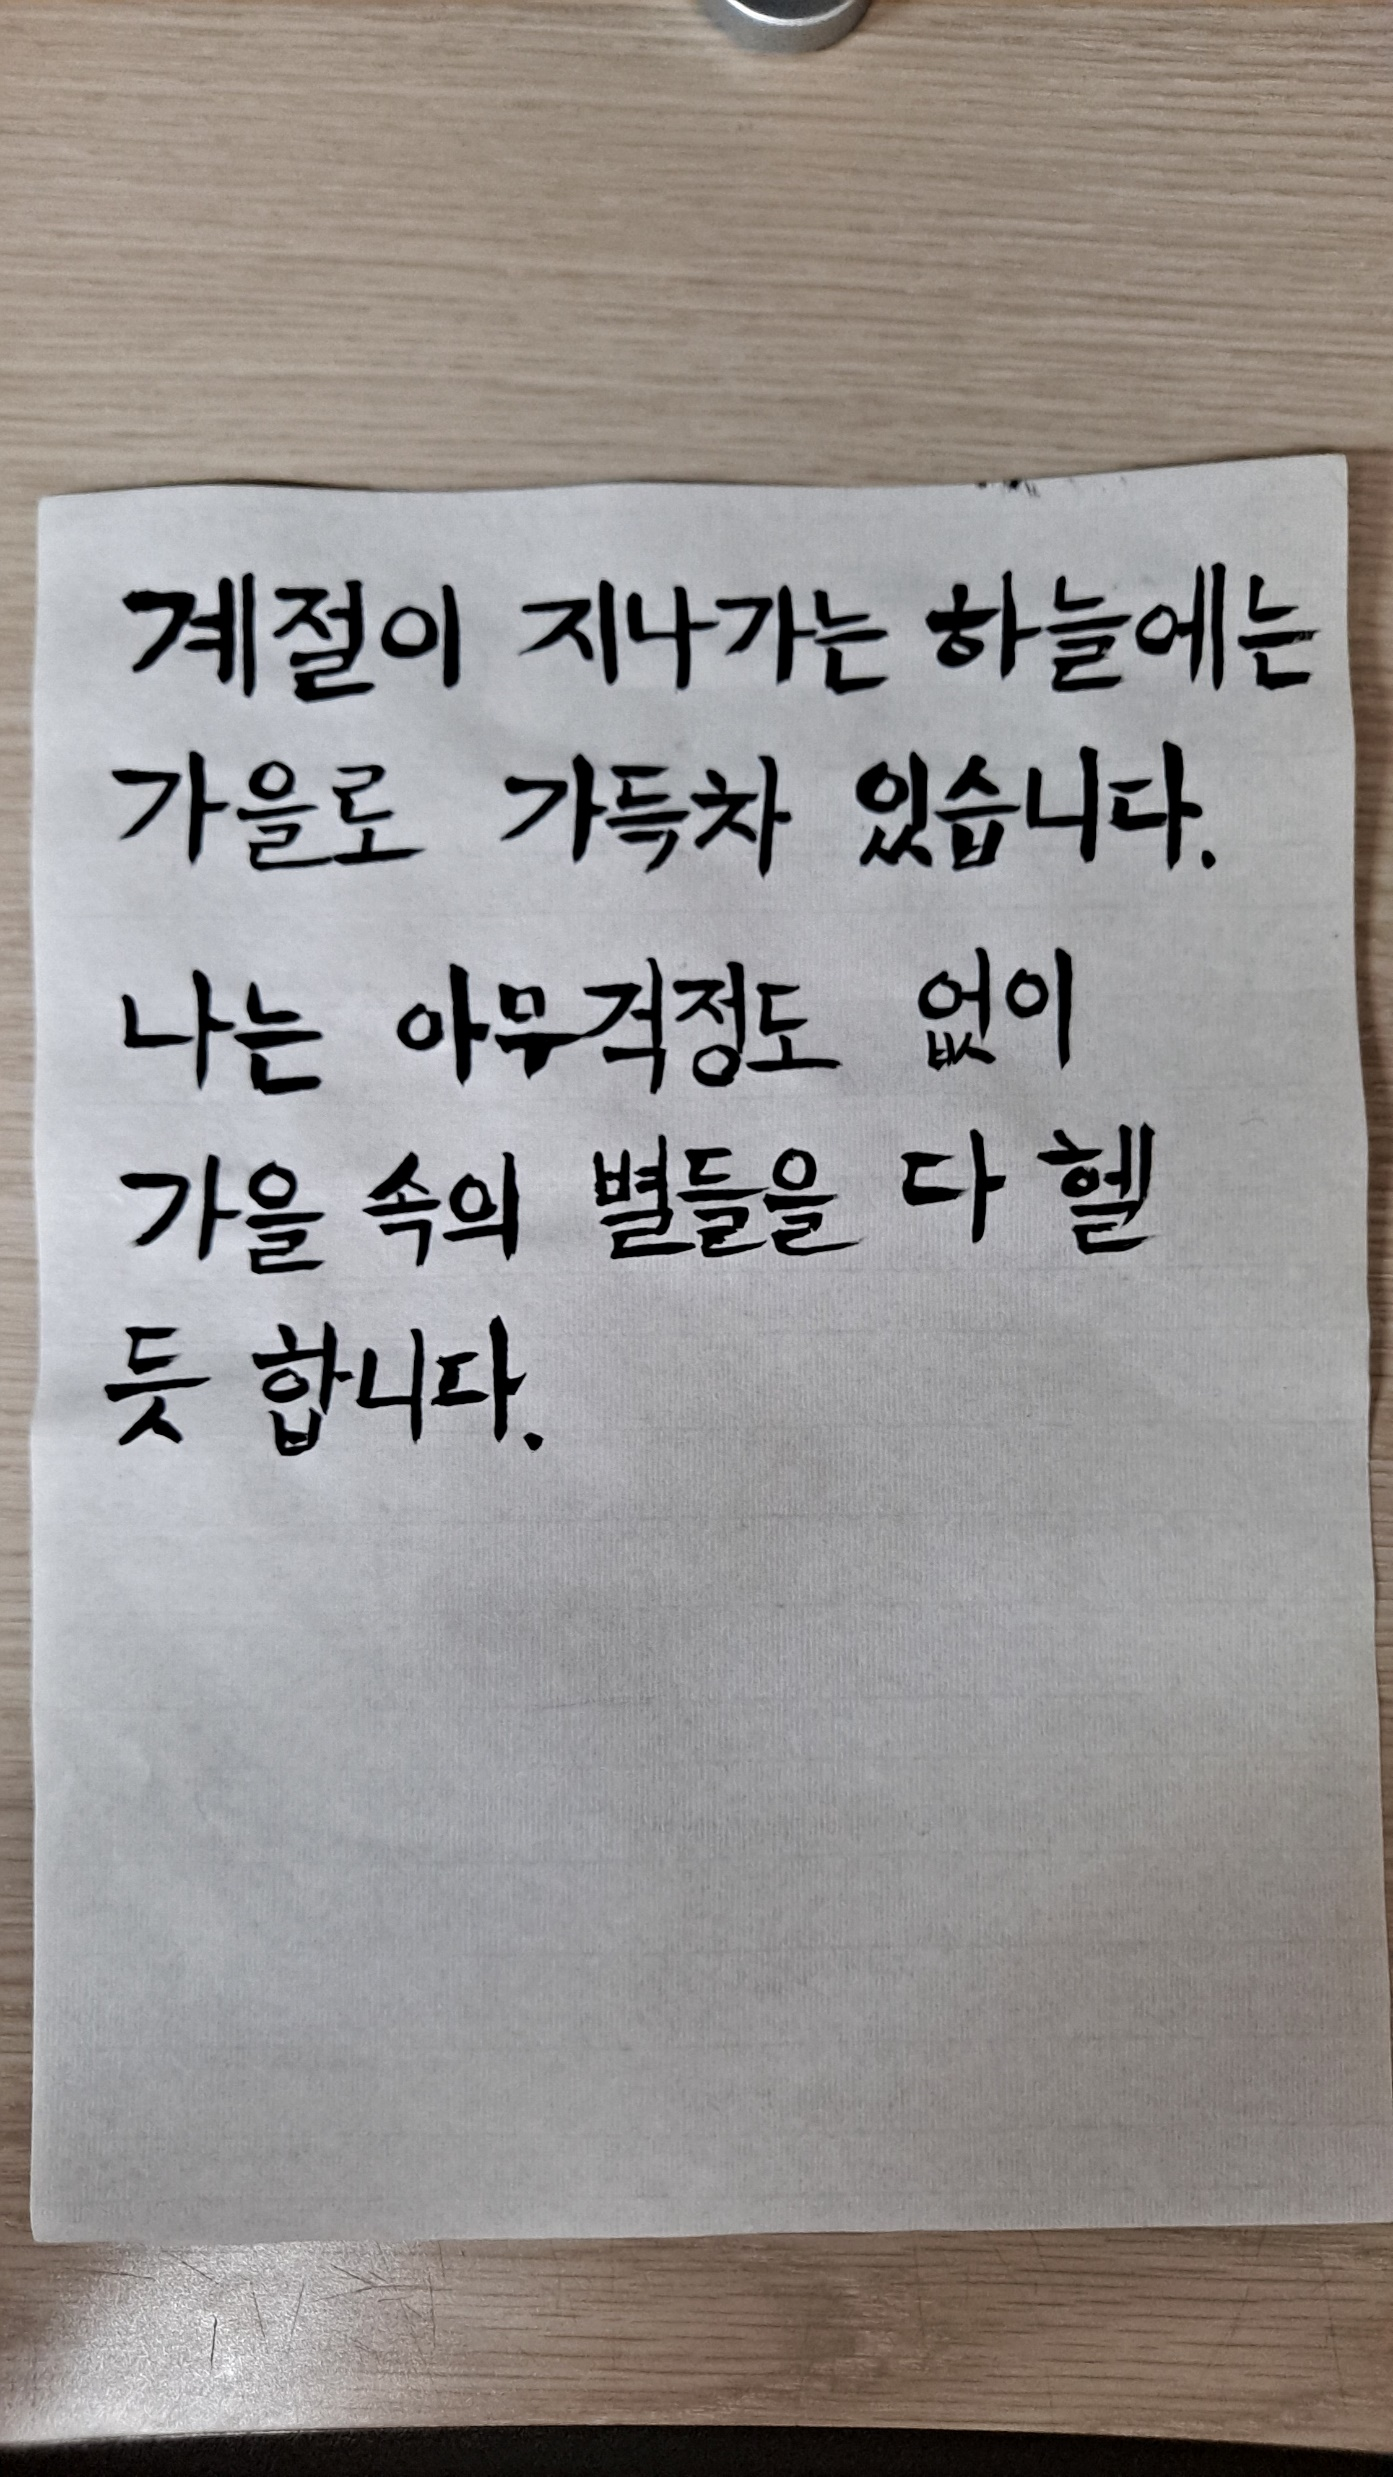 계절이 지나가는 하늘에는
가을로 가득차 있습니다.
나는 아무걱정도 없이
가을 속의 별들을 다 헬
듯 합니다.